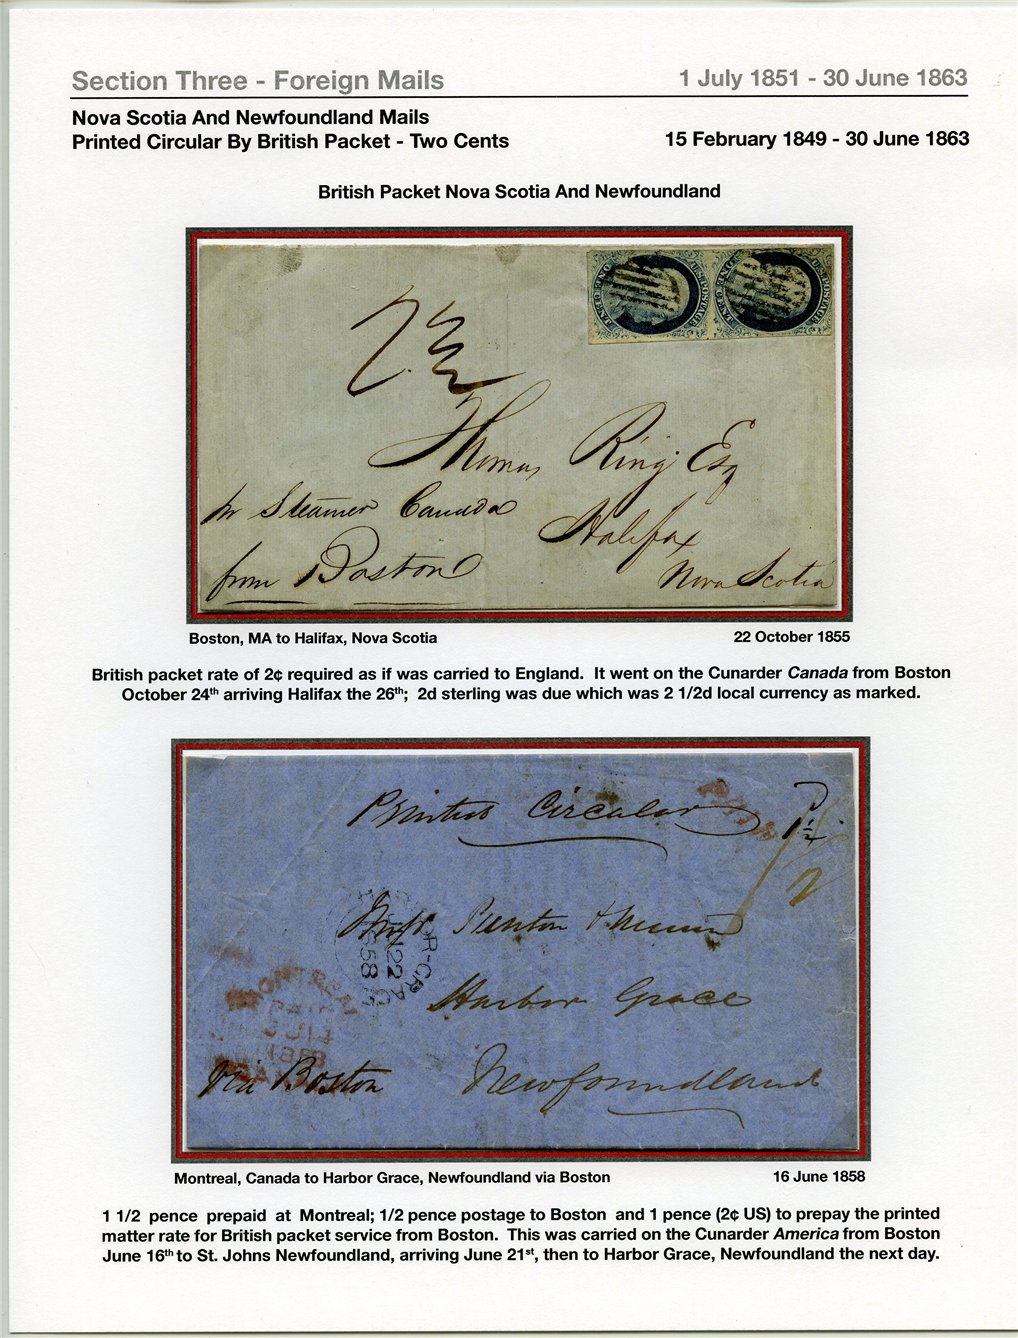 Section Three - Foreign Mails
1 July 1851 - 30 June 1863
Nova Scotia And Newfoundland Mails
Printed Circular By British Packet - Two Cents
15 February 1849 - 30 June 1863
British Packet Nova Scotia And Newfoundland
U.S. POSTAGE
ONE CENT
U.S. POSTAGE
ONE CENT
2 1/2
Thomas Ring Esq
pr Steamer Canada
Halifax
from Boston
Nova Scotia
Boston, MA to Halifax, Nova Scotia
22 October 1855
British packet rate of 2¢ required as if was carried to England. It went on the Cunarder Canada from Boston
October 24th arriving Halifax the 26th; 2d sterling was due which was 2 1/2d local currency as marked.
Printed Circular
PAID
1 1/2
2
Harbor Grace
MONTREAL
PAID
14
1858
22
58
via Boston
Newfoundland
Montreal, Canada to Harbor Grace, Newfoundland via Boston
16 June 1858
1 1/2 pence prepaid at Montreal; 1/2 pence postage to Boston and 1 pence (2¢ US) to prepay the printed
matter rate for British packet service from Boston. This was carried on the Cunarder America from Boston
June 16th to St. Johns Newfoundland, arriving June 21st, then to Harbor Grace, Newfoundland the next day.